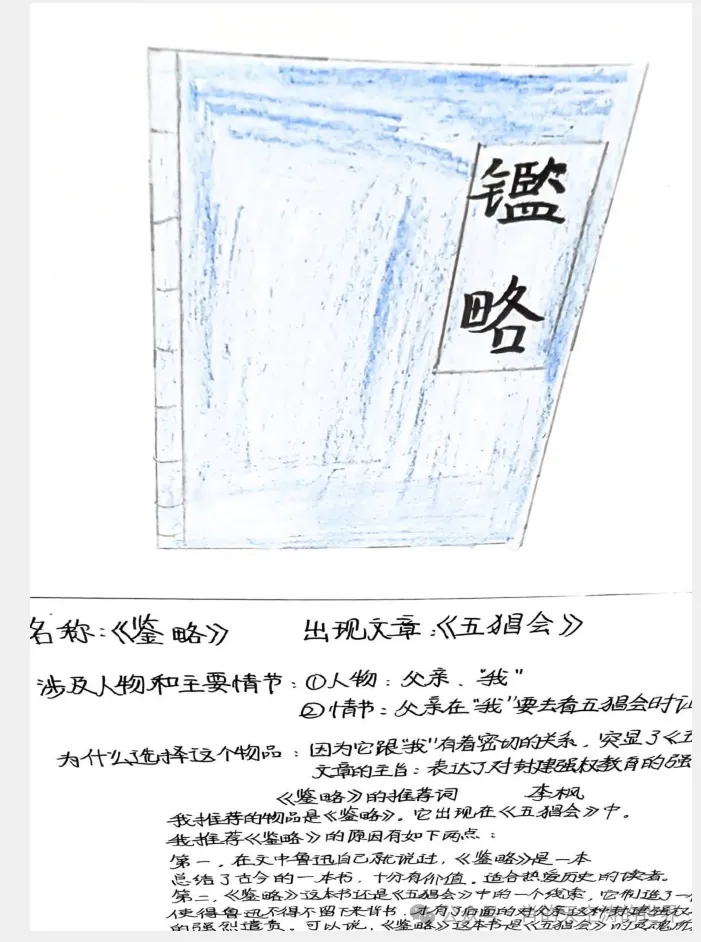 鑑
略
名称：《鉴略》 出现文章：《五猖会》
涉及人物和主要情节：①人物：父亲、“我”
②情节：父亲在“我”要去看五猖会时让
为什么选择这个物品：因为它跟“我”有着密切的关系，突显了《五
文章的主旨：表达了对封建强权教育的强
《鉴略》的推荐词 李枫
我推荐的物品是《鉴略》。它出现在《五猖会》中。
我推荐《鉴略》的原因有如下两点：
第一，在文中鲁迅自己就说过，《鉴略》是一本
总结了古今的一本书，十分有价值。适合热爱历史的读者。
第二，《鉴略》这本书还是《五猖会》中的一个线索，它制造了一
使得鲁迅不得不留下来背书，才有了后面的对父亲这种封建强权
的强烈谴责。可以说，《鉴略》这本书是《五猖会》的灵魂所
公众号